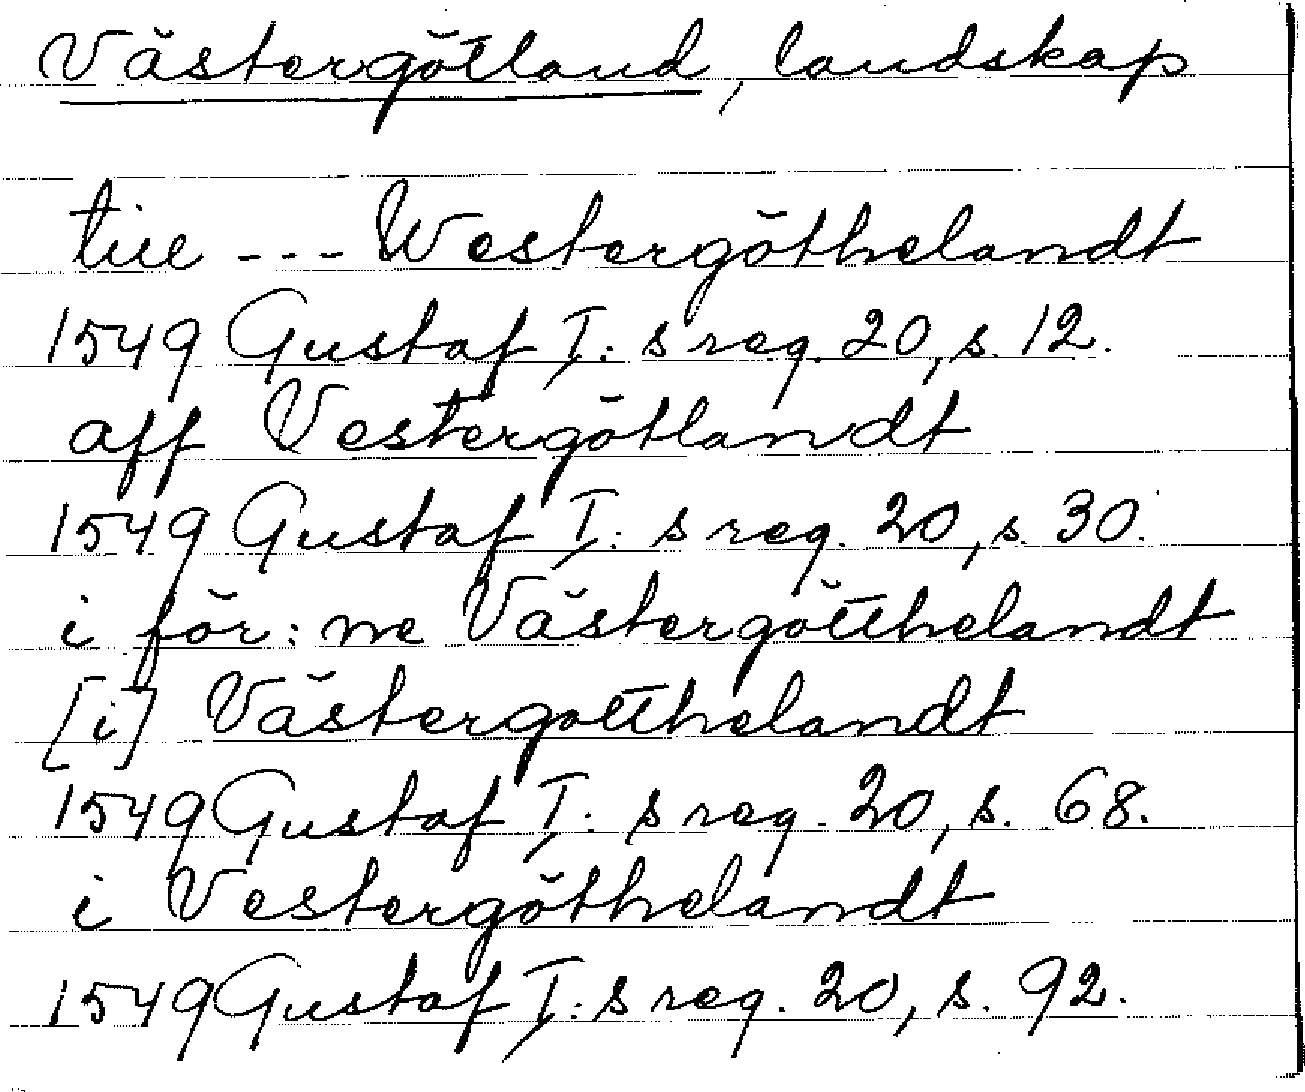 Västergötland, landskap
till --- Westergöthelandt
1549 Gustaf I:s reg. 20, s. 12.
aff Vestergötlandt
1549 Gustaf I:s reg. 20, s. 30.
i för:ne Västergötthelandt
[i] Västergotthelandt
1549 Gustaf I:s reg. 20, s. 68.
i Vestergöthelandt
1549 Gustaf I:s reg. 20, s. 92.